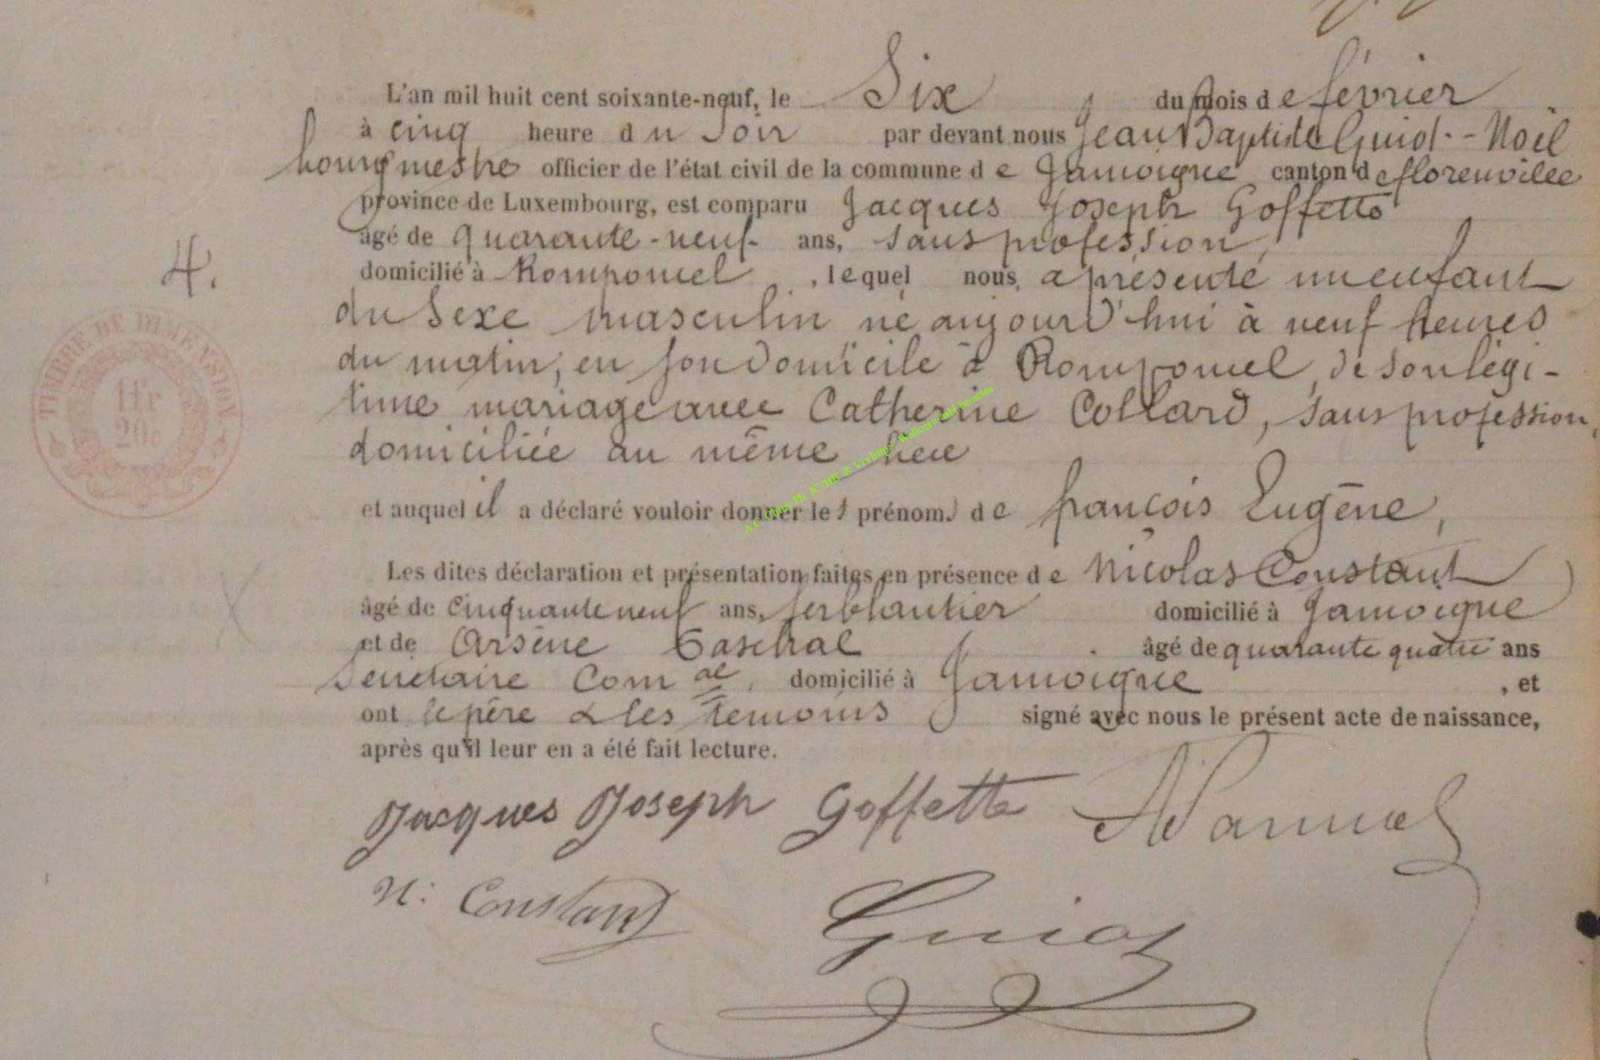 L'an mil huit cent soixante-neuf, le Six du mois de février
à cinq heure du Soir par devant nous Jean Baptiste Guiot-Noël
bourgmestre officier de l'état civil de la commune de Jamoigne canton de florenville
province de Luxembourg, est comparu Jacques Joseph Goffette
âgé de quarante-neuf ans, sans profession,
domicilié à Romponcel, lequel nous a présenté un enfant
4.
du Sexe masculin né aujourd'hui à neuf heures
du matin, en son domicile à Romponcel, de son légi-
time mariage avec Catherine Collard, sans profession,
domiciliée au même lieu
et auquel il a déclaré vouloir donner les prénoms de françois Eugène,
Les dites déclaration et présentation faites en présence de Nicolas Constant
âgé de cinquante neuf ans, ferblantier domicilié à Jamoigne
et de Arsène âgé de quarante quatre ans
Secrétaire Com.al, domicilié à Jamoigne, et
ont le père & les témoins signé avec nous le présent acte de naissance,
après qu'il leur en a été fait lecture.
Jacques Joseph Goffette
N: Constant
Guiot
TIMBRE DE DIMENSION
1fr
20c